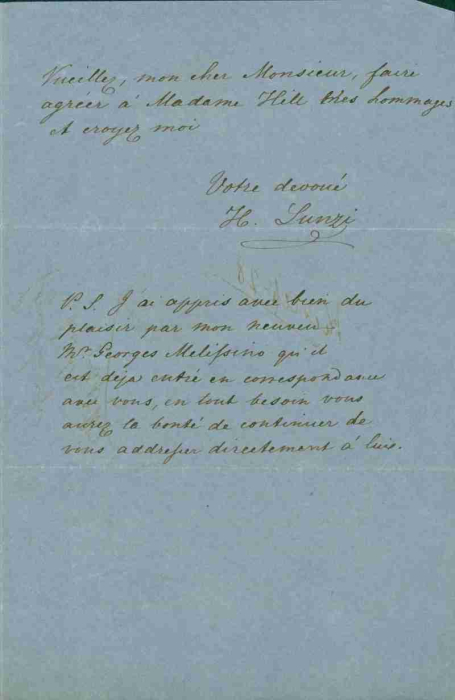 Vueillez, mon cher Monsieur, faire
agréer à Madame Hill mes hommages
et croyez moi
Votre devoué
H. Lunzi
P. S. J'ai appris avec bien du
plaisir par mon neuveu
Mr Georges Melissino qu'il
est déja entré en correspondance
avec vous, en tout besoin vous
aurez la bonté de continuer de
vous addresser directement à luis.